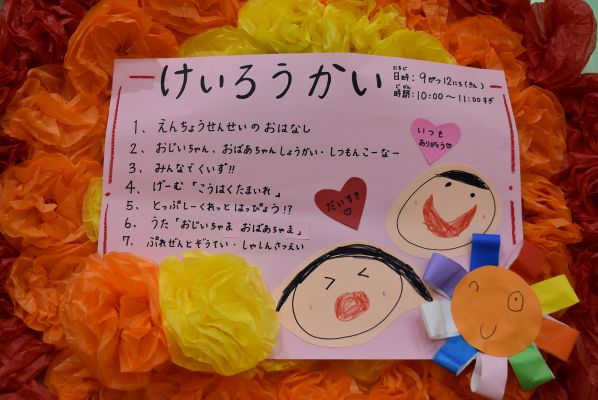 けいろうかい
にちじ
日時：9がつ12にち(きん)
じかん
時間：10:00～11:00すぎ
1、えんちょうせんせいのおはなし
2、おじいちゃん、おばあちゃんしょうかい・しつもんこーなー
3、みんなでくいず!!
4、げーむ「こうはくたまいれ」
5、とっぷしーくれっとはっぴょう!?
6、うた「おじいちゃま おばあちゃま」
7、ぷれぜんとぞうてい・しゃしんさつえい
いつも
ありがとう♡
だいすき
♡